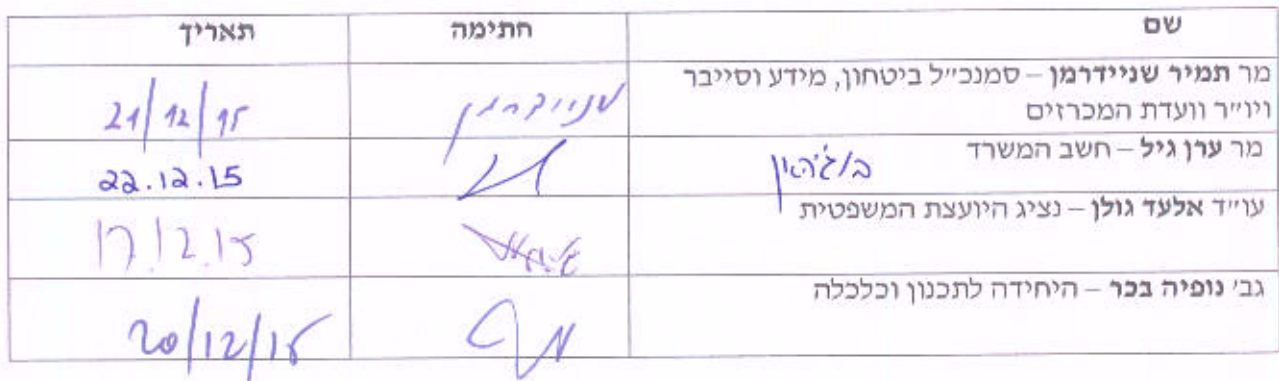 שם חתימה תאריך
מר תמיר שניידרמן – סמנכ״ל ביטחון, מידע וסייבר
ויו״ר וועדת המכרזים שניידרמן 21/12/15
מר ערן גיל – חשב המשרד 22.12.15
עו״ד אלעד גולן – נציג היועצת המשפטית 17.12.15
גב׳ נופיה בכר – היחידה לתכנון וכלכלה
20/12/15